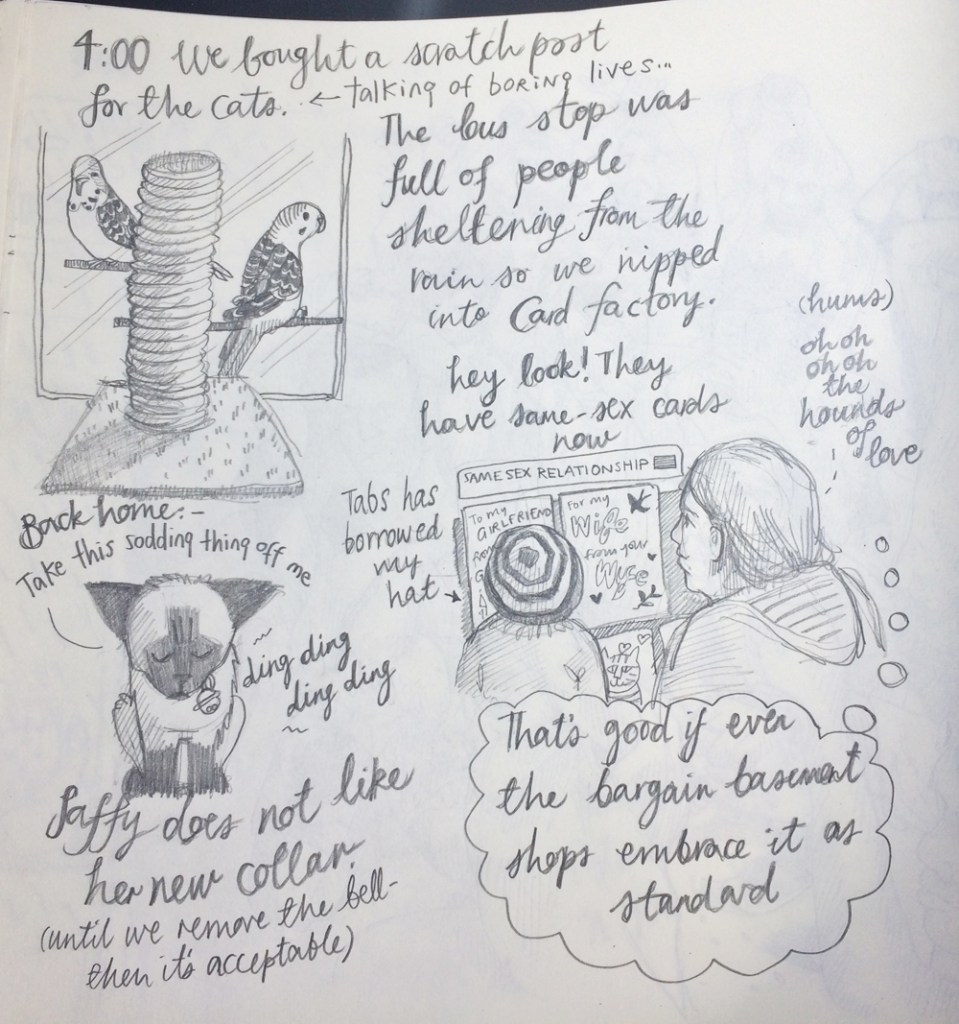 4:00 We bought a scratch post
for the cats. ← talking of boring lives...
The bus stop was
full of people
sheltering from the
rain so we nipped
into Card factory.
hey look! They
have same-sex cards
now
(hums)
oh oh
oh oh
the
hounds
of
love
SAME SEX RELATIONSHIP
To my
GIRLFRIEND
For my
Wife
from your
Wife
Tabs has
borrowed
my
hat
Back home:-
Take this sodding thing off me
ding ding
ding ding
Saffy does not like
her new collar.
(until we remove the bell-
then it's acceptable)
That's good if even
the bargain basement
shops embrace it as
standard